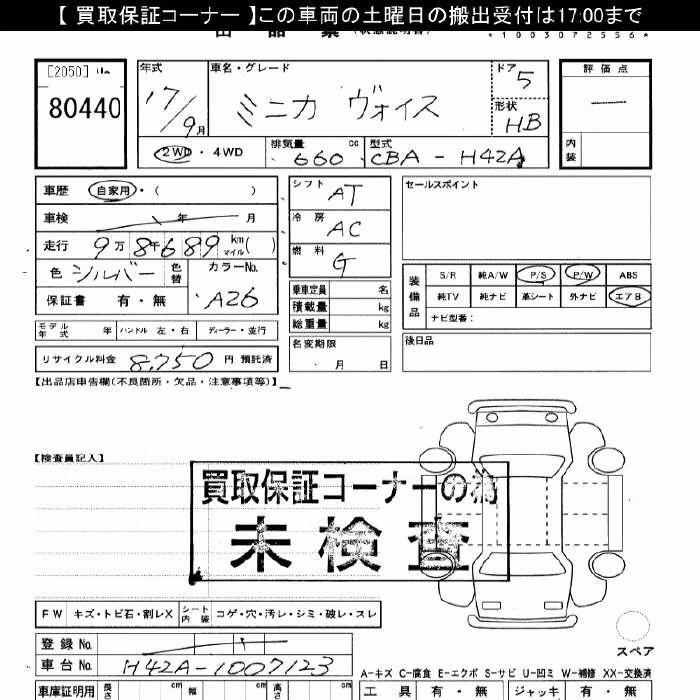 【 買取保証コーナー 】この車両の土曜日の搬出受付は17:00まで
*1003072556*
[2050]
80440
年式 17/9月
車名・グレード ミニカ ヴォイス
ドア 5
形状 HB
評価点 —
内装
2WD・4WD
排気量 660 cc
型式 CBA-H42A
車歴 自家用・( )
車検 年 月
走行 9万8千689 km マイル( )
色 シルバー 色替
カラーNo. A26
保証書 有・無
モデル年式 年 ハンドル 左・右 ディーラー・並行
リサイクル料金 8,750 円 預託済
シフト AT
冷房 AC
燃料 G
乗車定員 名
積載量 kg
総重量 kg
名変期限 月 日
セールスポイント
装備品 S/R 純A/W P/S P/W ABS
純TV 純ナビ 革シート 外ナビ エアB
ナビ型番:
後日品
【出品店申告欄(不良箇所・欠品・注意事項等)】
【検査員記入】
買取保証コーナーの為
未検査
FW キズ・トビ石・割レX シート内装 コゲ・穴・汚レ・シミ・破レ・スレ
登録No.
車台No. H42A-1007123
スペア
A-キズ C-腐食 E-エクボ S-サビ U-凹ミ W-補修 XX-交換済
車庫証明用 長さ cm 幅 cm 高さ cm
工具 有・無 ジャッキ 有・無